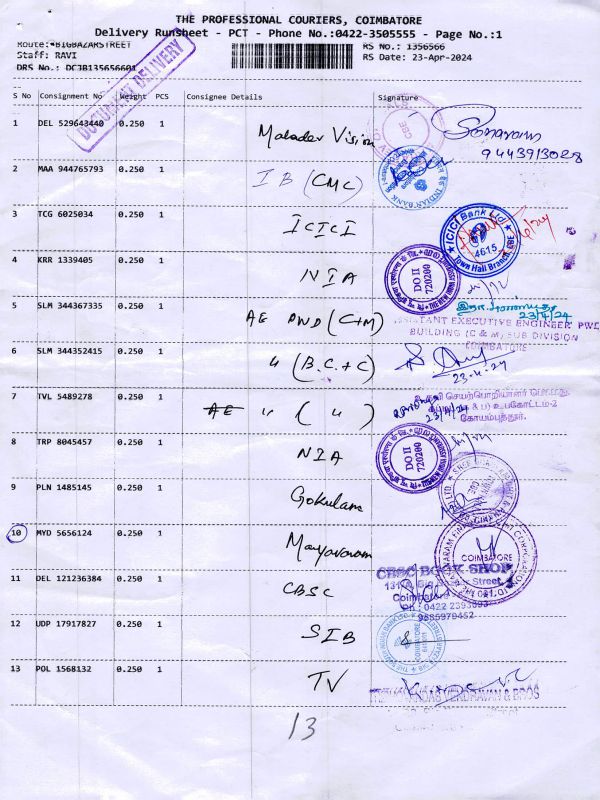 THE PROFESSIONAL COURIERS, COIMBATORE
Delivery Runsheet - PCT - Phone No.:0422-3505555 - Page No.:1
Route:*BIGBAZARSTREET RS No.: 1356566
Staff: RAVI RS Date: 23-Apr-2024
DRS No.: DCJB135656601
DOCUMENT DELIVERY
S No Consignment No Weight PCS Consignee Details Signature
1 DEL 529643440 0.250 1 Mahadev Vision
9443913028
2 MAA 944765793 0.250 1 IB (CMC)
INDIAN BANK
3 TCG 6025034 0.250 1 ICICI
ICICI Bank Ltd
4615
Town Hall Branch, CBE
4 KRR 1339405 0.250 1 NIA
DO II
720200
5 SLM 344367335 0.250 1 AE PWD (C+M)
23/4/24
ASSISTANT EXECUTIVE ENGINEER PWD
BUILDING (C & M) SUB DIVISION
COIMBATORE
6 SLM 344352415 0.250 1 " (B.C.+C)
23-4-24
7 TVL 5489278 0.250 1 AE " ( " )
23/4/24
உபகோட்டம்-2
கோயம்புத்தூர்.
8 TRP 8045457 0.250 1 NIA
DO II
720200
9 PLN 1485145 0.250 1 Gokulam
10 MYD 5656124 0.250 1 Mayavaram
COIMBATORE
11 DEL 121236384 0.250 1 CBSC
CBSC BOOK SHOP
Street
Coimbatore
Ph: 0422 2393693
9585979452
12 UDP 17917827 0.250 1 SIB
13 POL 1568132 0.250 1 TV
& BROS
13